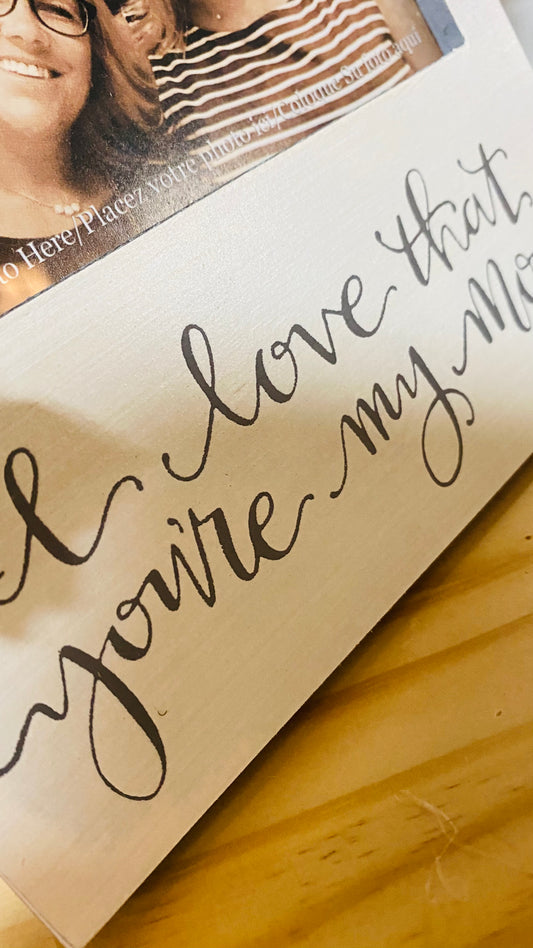 to Here/Placez votre photo ici/Coloque Su foto aquí
I love that
you're my Mo